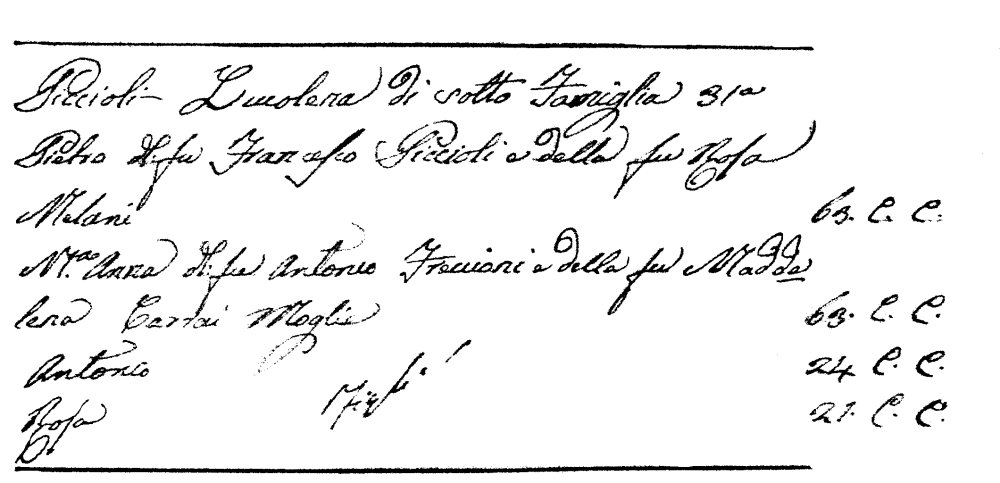 Piccioli - Lucolena di sotto Famiglia 31a
Pietro del fu Francesco Piccioli e della fu Rosa
Melani 63. C. C.
M.a Anna del fu Antonio Freciani e della fu Madda
lena Carrai Moglie 63. C. C.
Antonio 24 C. C.
Rosa Figli 21. C. C.